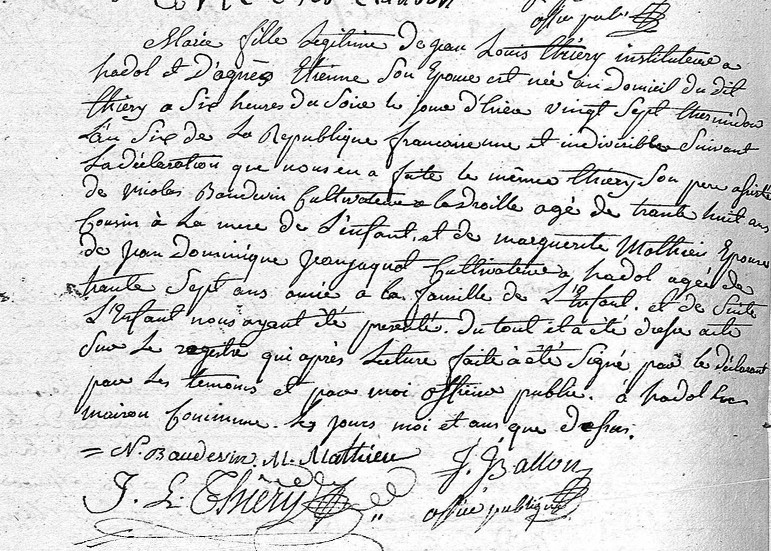 officier public
Marie fille legitime de jean Louis thiery instituteur a
hadol et D'agnès Etienne son Epouse est née au Domicil du dit
thiery a Six heures du Soire le joure d'hier vingt Sept thermidor
L'an Six de La Republique francoisenne et indivisible Suivant
La déclaration que nous en a faite le même thiery Son pere assisté
de nicolas Baudevin Cultivateur agé de trante huit ans
Cousin à La mere de L'enfant, et de marguerite Mathieu Epouse
de Jean Dominique jeanjaquot Cultivateur a hadol agée de
trante Sept ans amie a la famille de L'Enfant. et de Suite
L'Enfant nous ayant été presenté. du tout il a été dressé acte
Sur Le registre qui après Lecture faite à été Signé par le déclarant
par Les temoins et par moi officier public. à hadol En
maison Commune. Les jours moi et ans que dessus.
= N. Baudevin M. Mathieu J. Balland
J. L. Thiéry officié publique